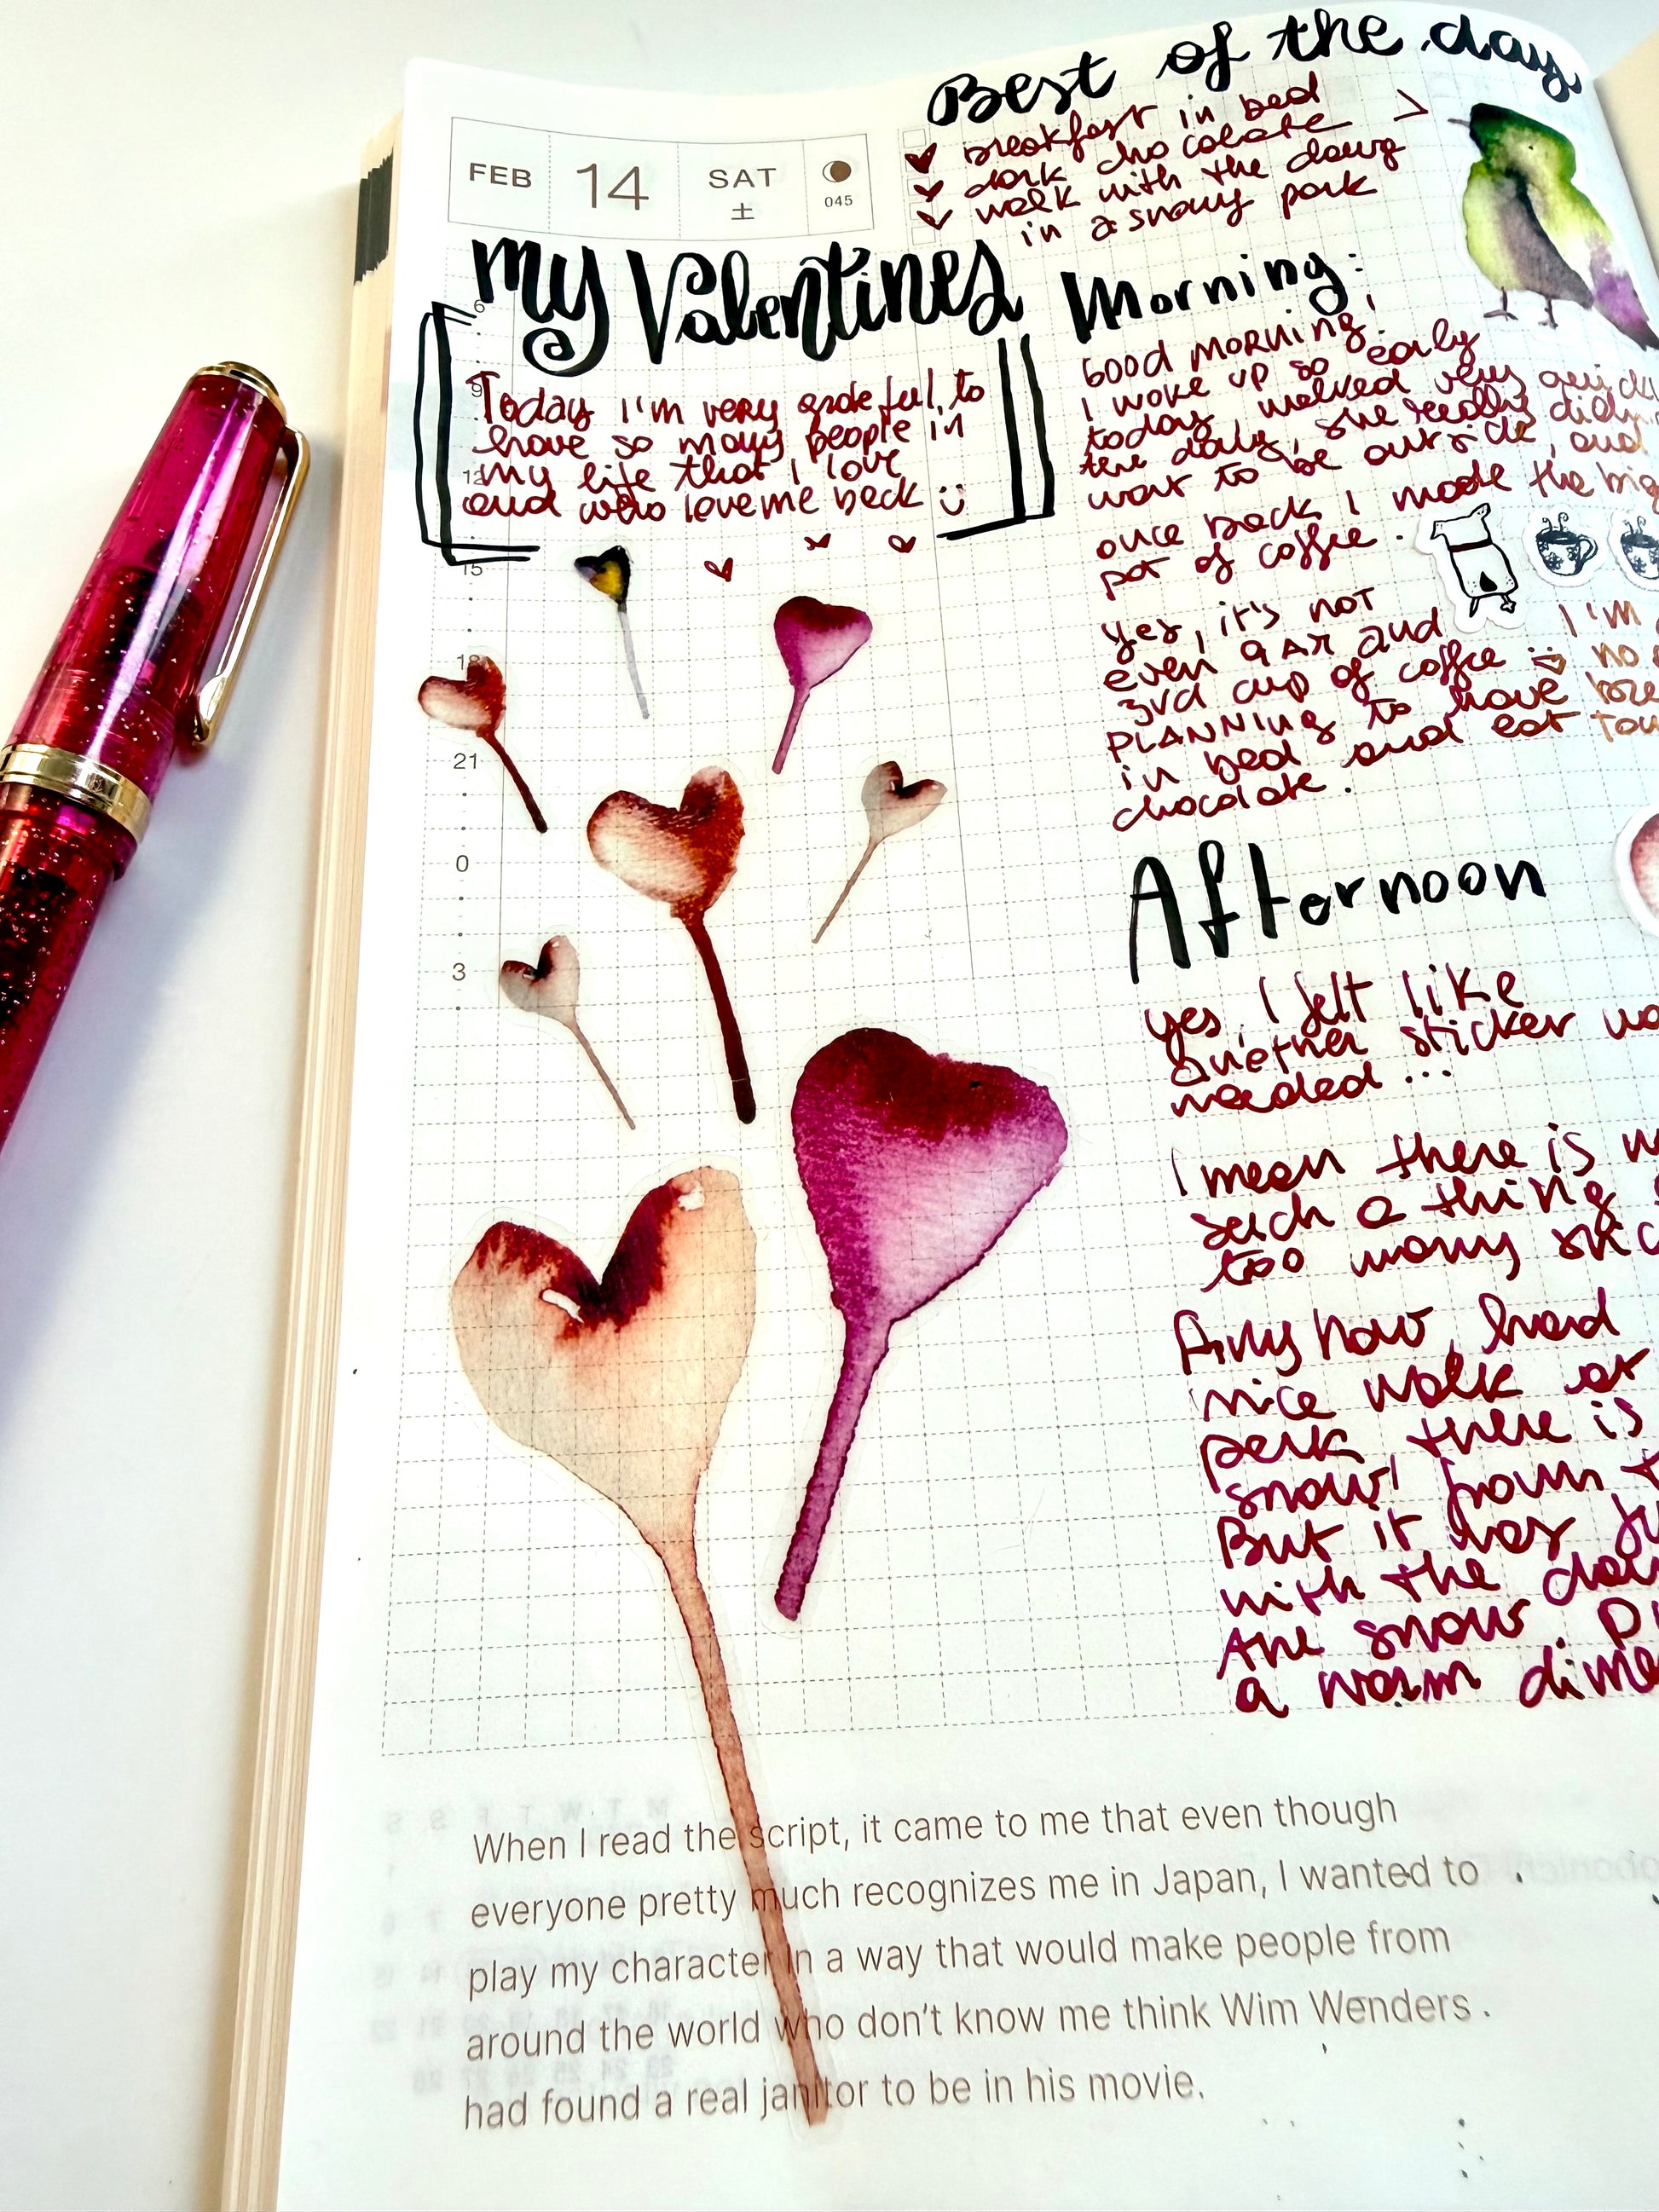 FEB 14 SAT 土 045
Best of the day
breakfast in bed
dark chocolate
walk with the dawg
in a snowy park
my Valentines
Today I'm very grateful to
have so many people in
my life that I love
and who love me back
6
9
12
15
18
21
0
3
Morning:
Good MORNING!
I woke up so early
today, walked very
the dawg, she really
want to be outside, and
once back I made the big
pot of coffee.
yes, it's not
even 9 AM and I'M
3rd cup of coffee no
PLANNING to have
in bed and eat
chocolate.
Afternoon
yes, I felt like
another sticker
needed...
I mean there is
such a thing
too many
Anyhow, had
nice walk at
park, there is
snow from
But it was
with the
the snow.
a warm
When I read the script, it came to me that even though
everyone pretty much recognizes me in Japan, I wanted to
play my character in a way that would make people from
around the world who don't know me think Wim Wenders
had found a real janitor to be in his movie.